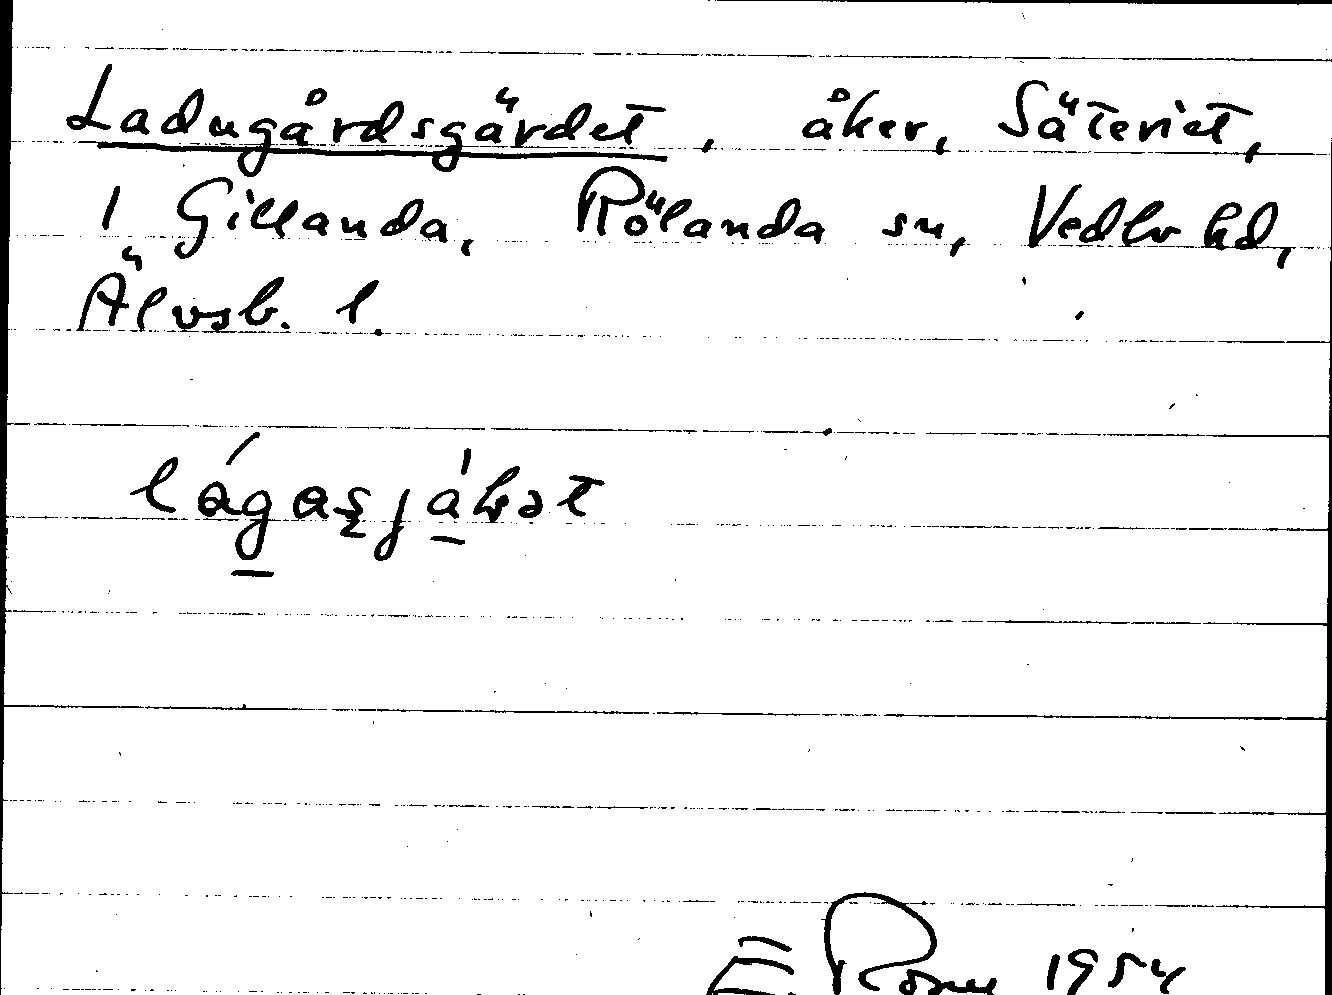 Ladugårdsgärdet, åker, Säteriet,
1 Gillanda, Rölanda sn, Vedbo hd,
Älvsb. l.
E Rosell 1954